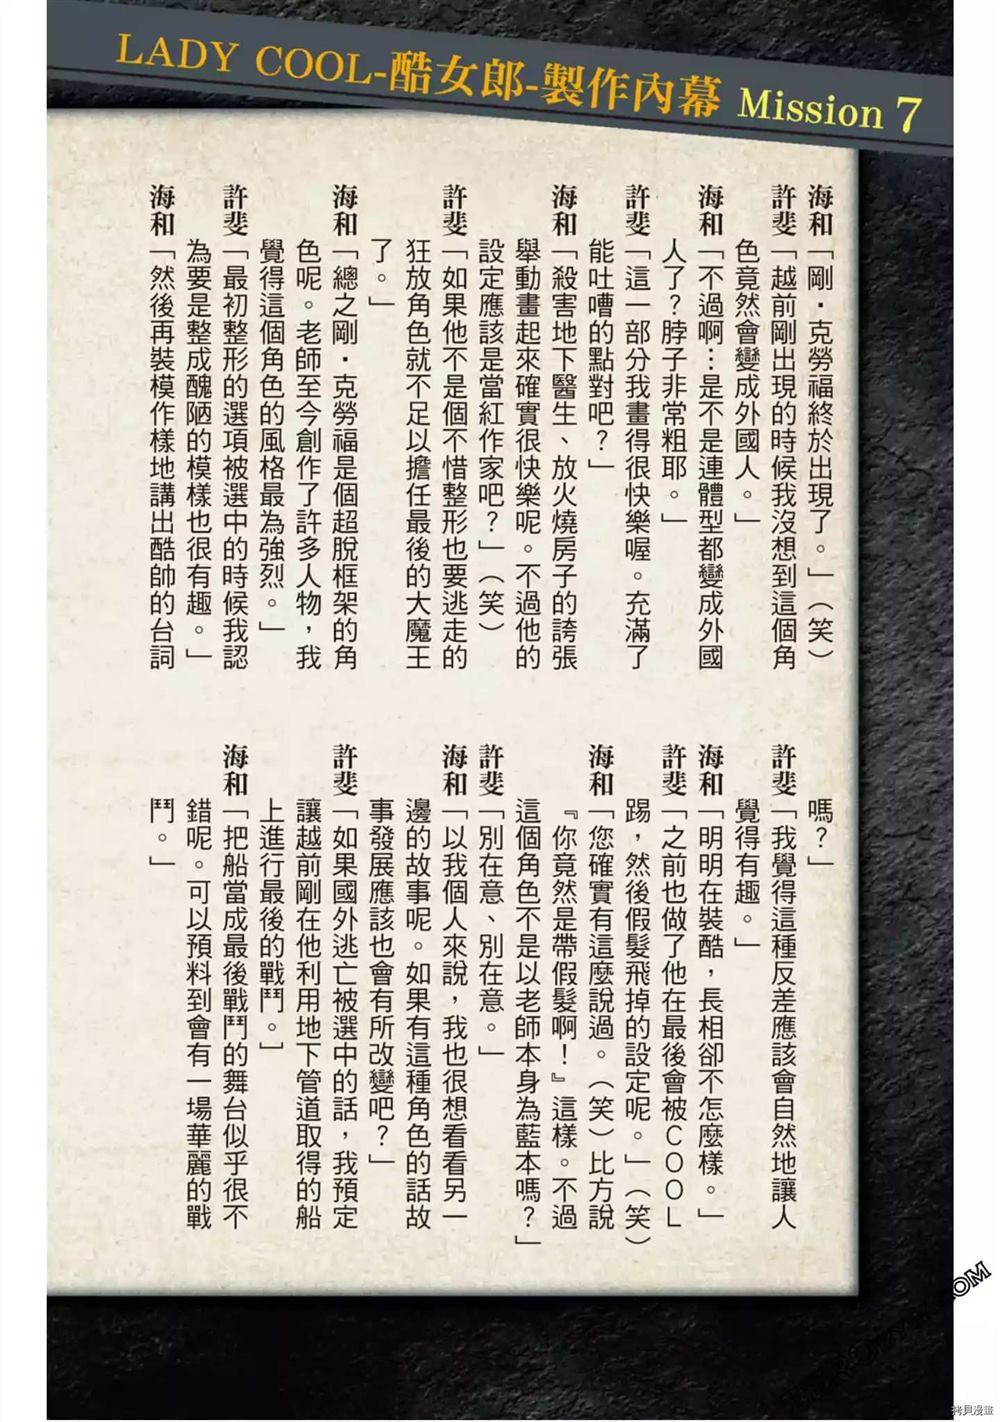 LADY COOL-酷女郎-製作內幕 Mission 7
海和「剛・克勞福終於出現了。」（笑）
許斐「越前剛出現的時候我沒想到這個角
色竟然會變成外國人。」
海和「不過啊…是不是連體型都變成外國
人了？脖子非常粗耶。」
許斐「這一部分我畫得很快樂喔。充滿了
能吐嘈的點對吧？」
海和「殺害地下醫生、放火燒房子的誇張
舉動畫起來確實很快樂呢。不過他的
設定應該是當紅作家吧？」（笑）
許斐「如果他不是個不惜整形也要逃走的
狂放角色就不足以擔任最後的大魔王
了。」
海和「總之剛・克勞福是個超脫框架的角
色呢。老師至今創作了許多人物，我
覺得這個角色的風格最為強烈。」
許斐「最初整形的選項被選中的時候我認
為要是整成醜陋的模樣也很有趣。」
海和「然後再裝模作樣地講出酷帥的台詞
嗎？」
許斐「我覺得這種反差應該會自然地讓人
覺得有趣。」
海和「明明在裝酷，長相卻不怎麼樣。」
許斐「之前也做了他在最後會被ＣＯＯＬ
踢，然後假髮飛掉的設定呢。」（笑）
海和「您確實有這麼說過。（笑）比方說
『你竟然是帶假髮啊！』這樣。不過
這個角色不是以老師本身為藍本嗎？」
許斐「別在意、別在意。」
海和「以我個人來說，我也很想看看另一
邊的故事呢。如果有這種角色的話故
事發展應該也會有所改變吧？」
許斐「如果國外逃亡被選中的話，我預定
讓越前剛在他利用地下管道取得的船
上進行最後的戰鬥。」
海和「把船當成最後戰鬥的舞台似乎很不
錯呢。可以預料到會有一場華麗的戰
鬥。」
拷貝漫畫